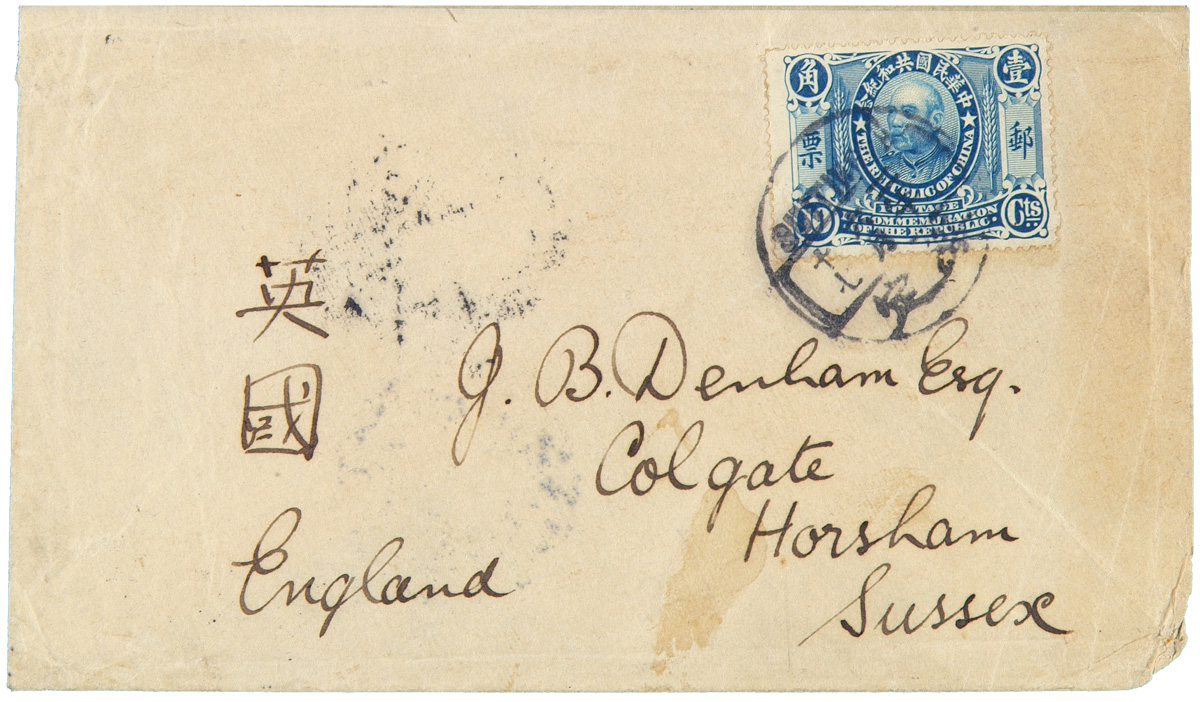 中華民國共和紀念
角
壹
票
郵
THE REPUBLIC OF CHINA
POSTAGE
COMMEMORATION
OF THE REPUBLIC.
Cts
英
國
J. B. Denham Esq.
Colgate
Horsham
Sussex
England